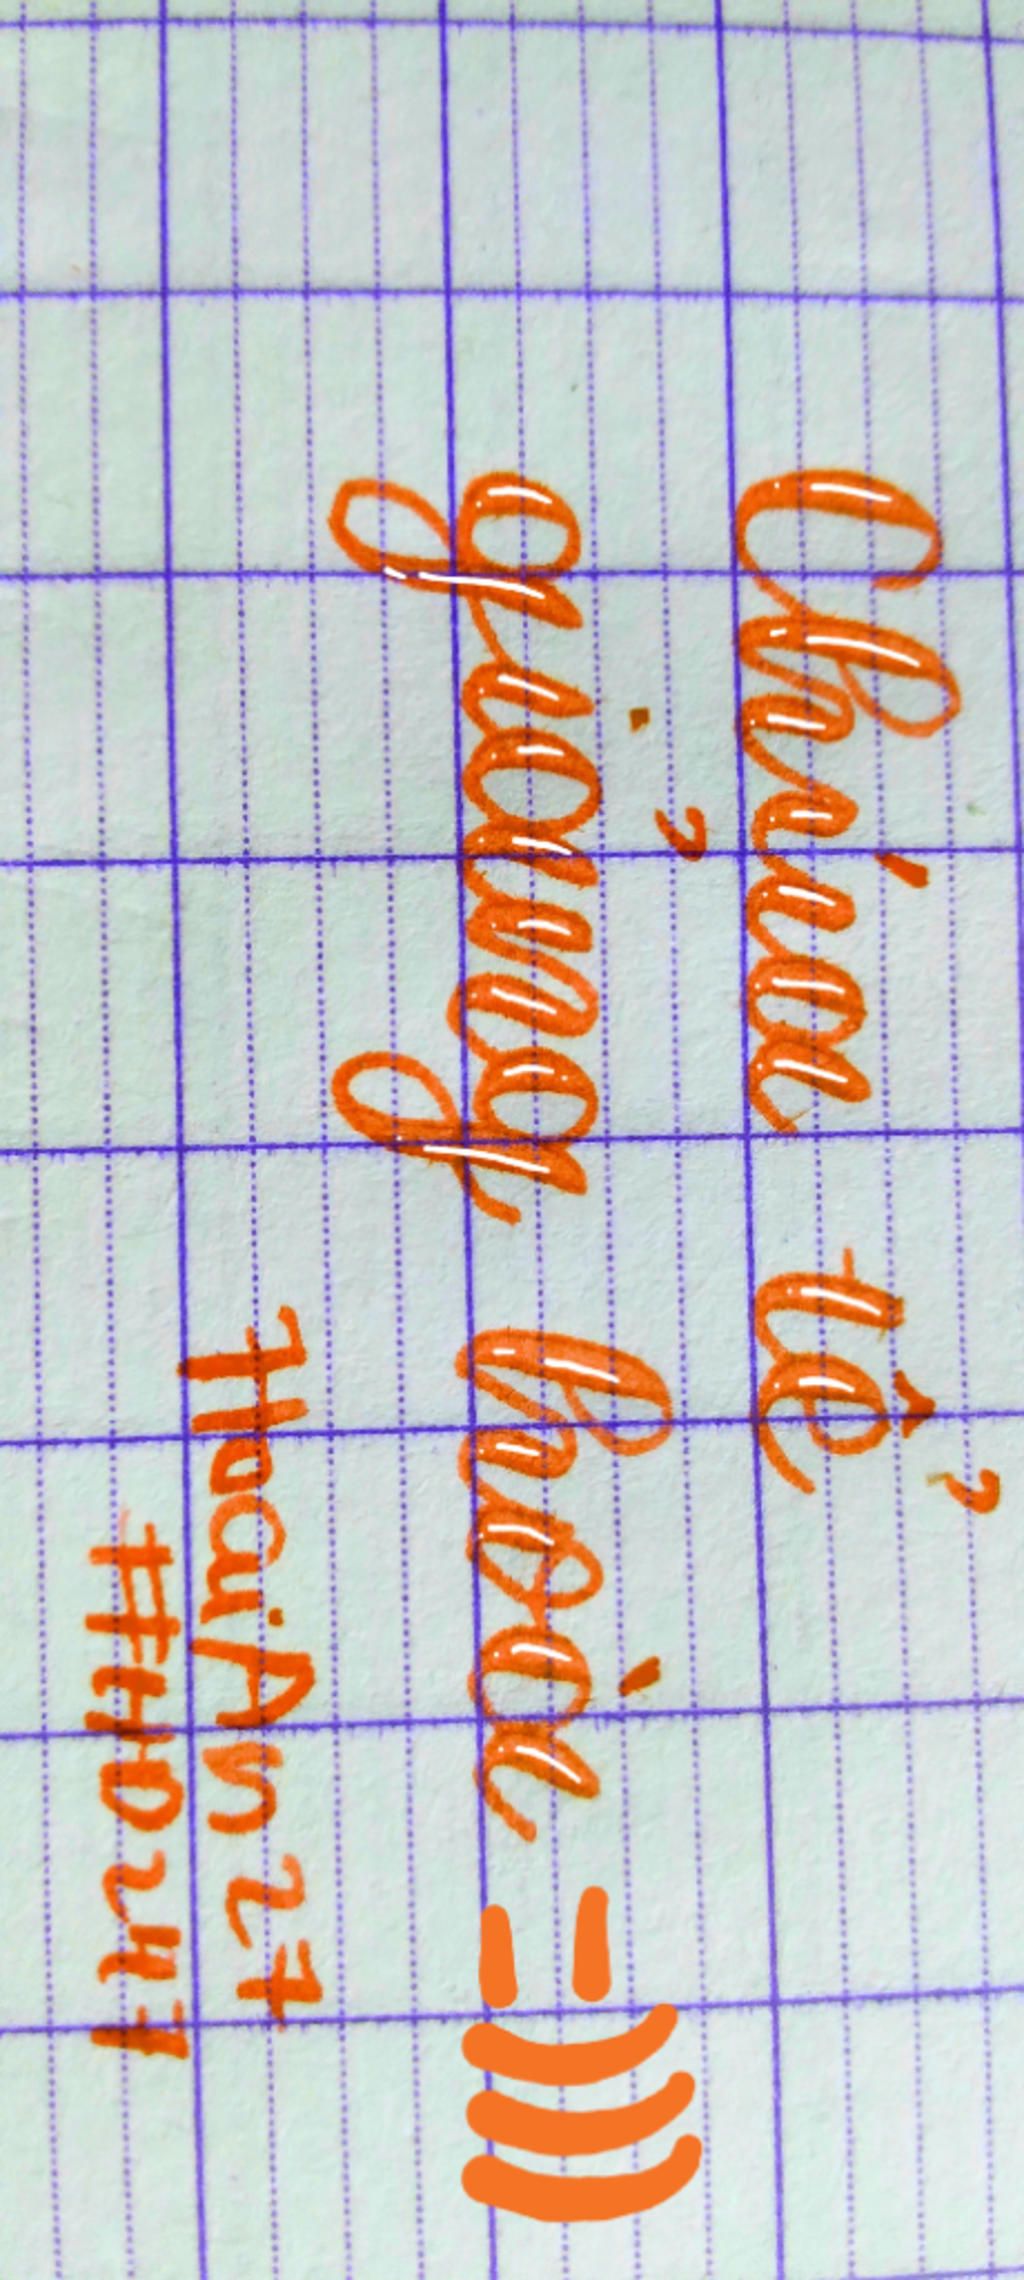 Chúa tể
giảng hoà =)))
HoaiAn27
#HD247